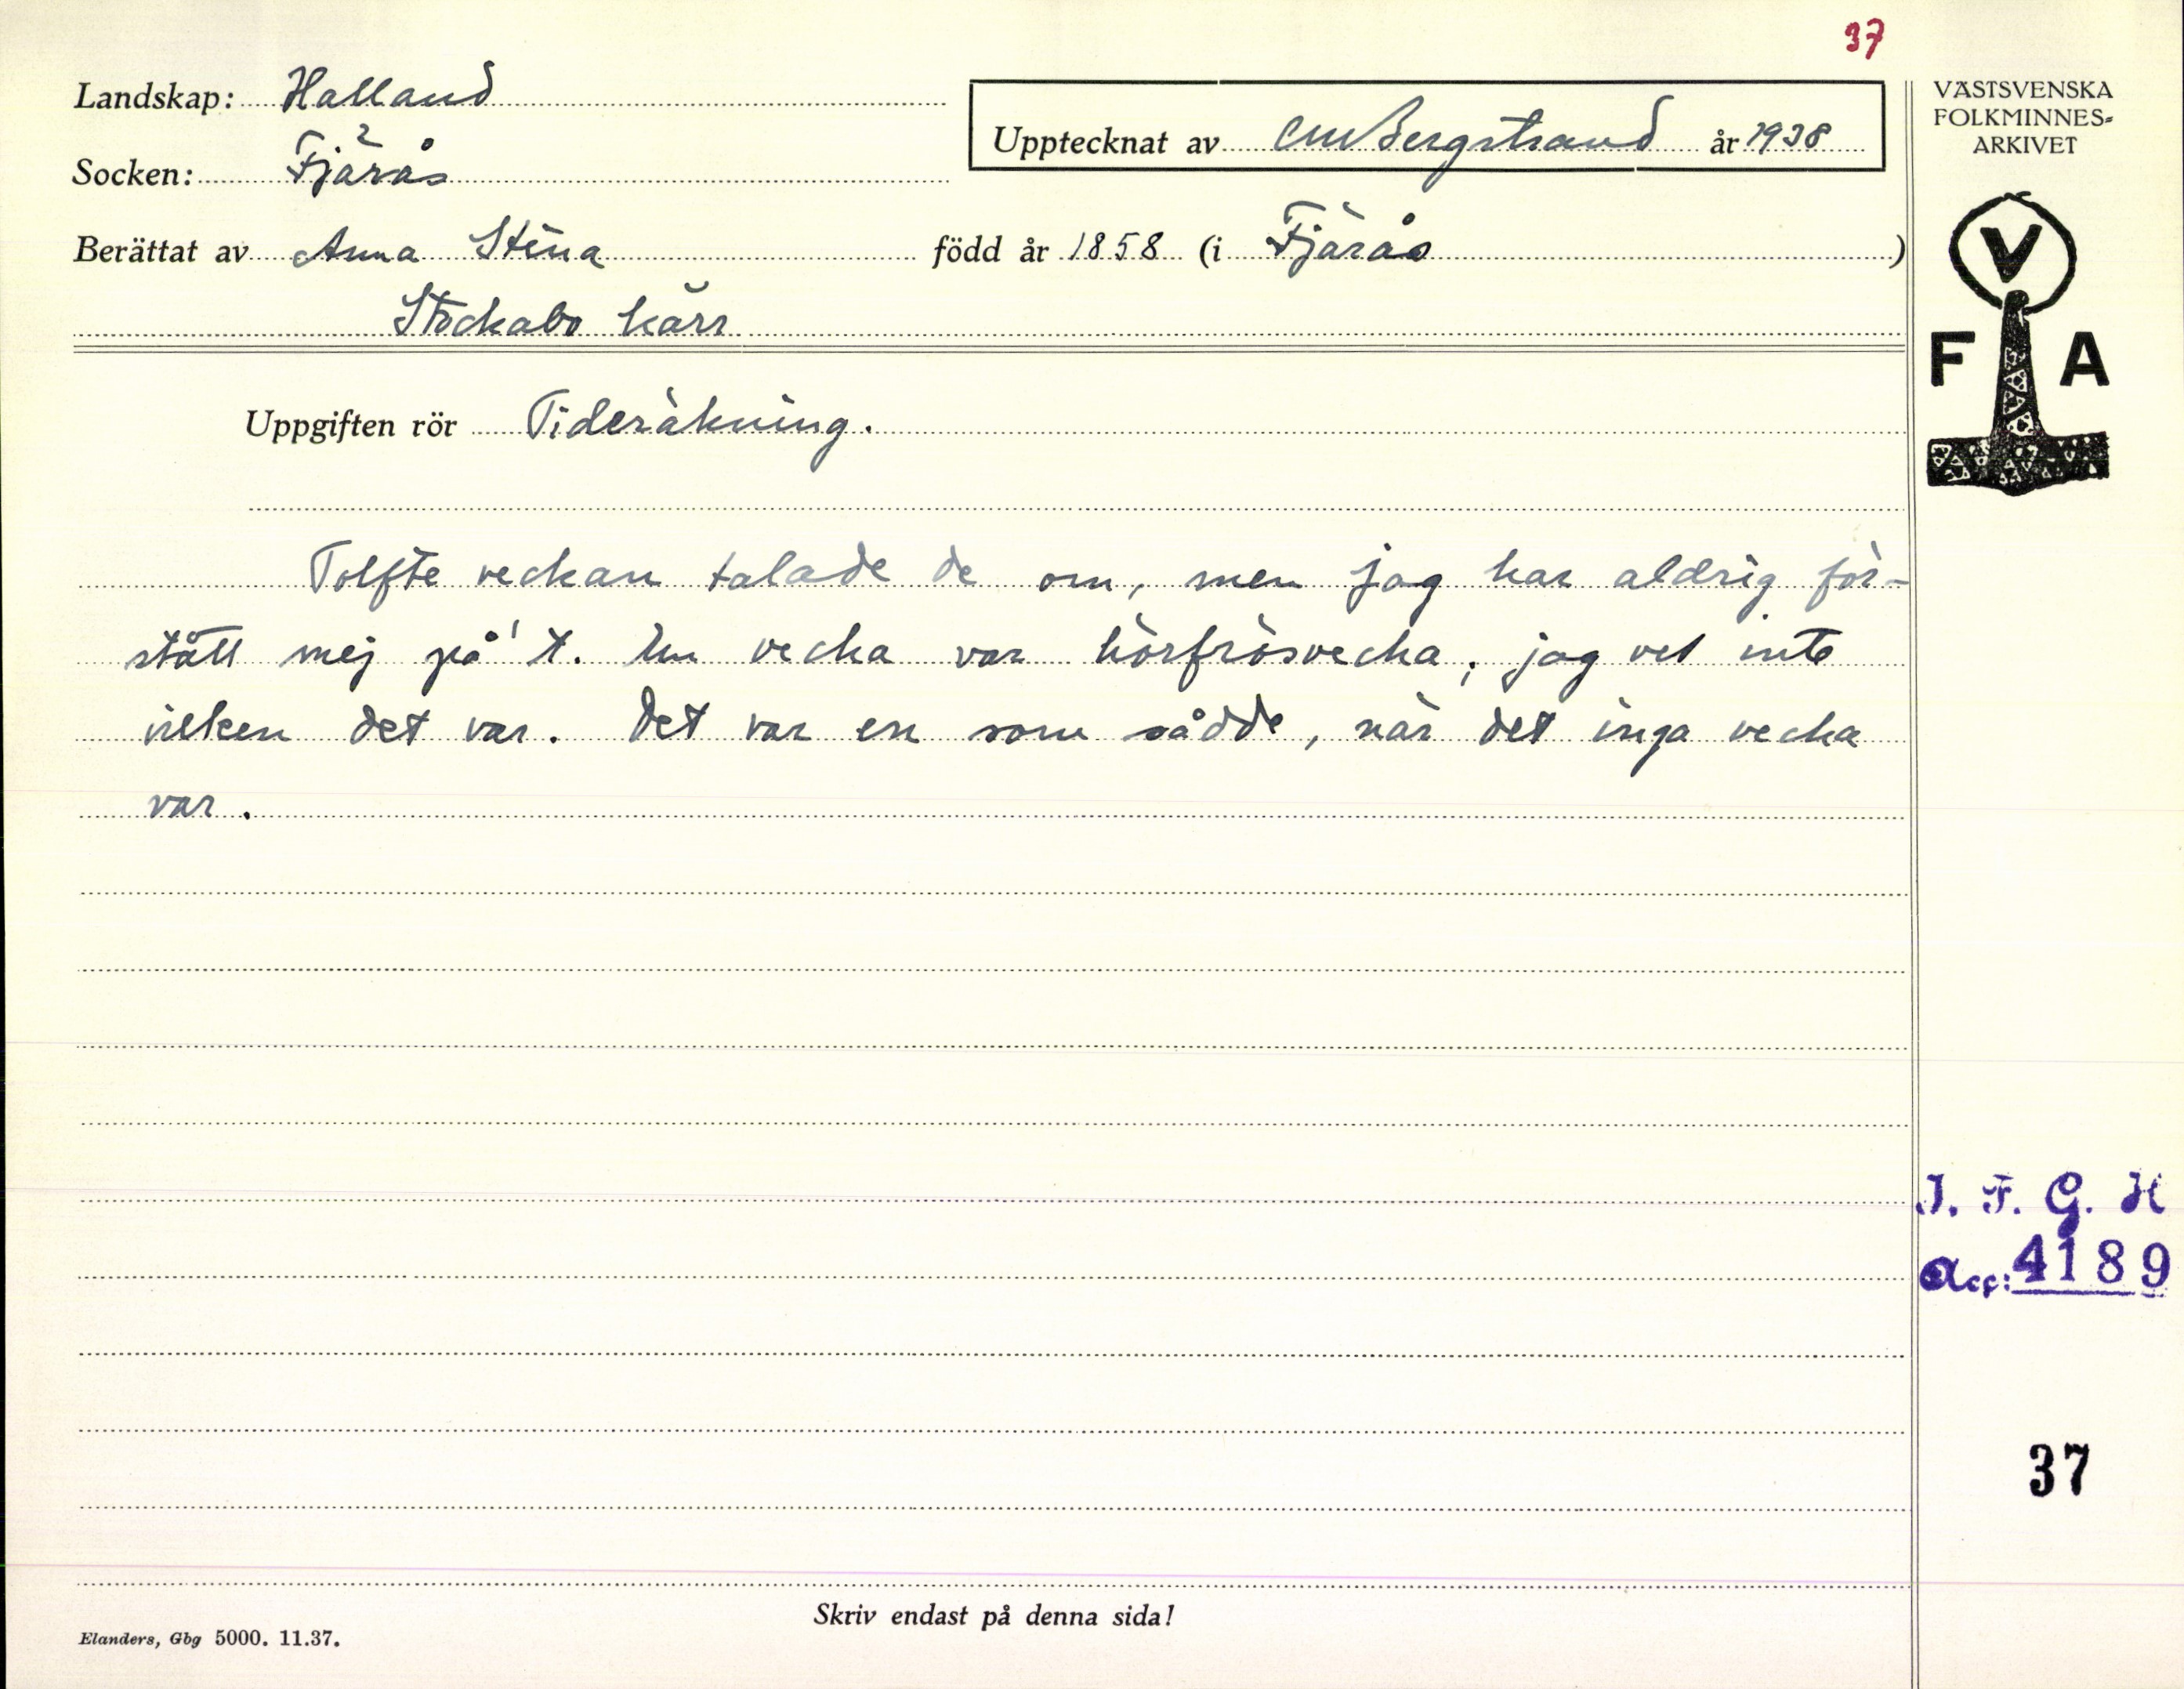 37
Landskap: Halland
Upptecknat av CMBergstrand år 1938
Socken: Fjärås
Berättat av Anna Stina född år 1858 (i Fjärås)
Stockabo kärr
Uppgiften rör Tideräkning.
Tolfte veckan talade de om, men jag har aldrig för-
stått mej på't. En vecka var hörfrösvecka, jag vet inte
vilken det var. Det var en som sådde, när det inga vecka
var.
VÄSTSVENSKA
FOLKMINNES-
ARKIVET
V
F A
I. F. G. H
Acc: 4189
37
Skriv endast på denna sida!
Elanders, Gbg 5000. 11.37.